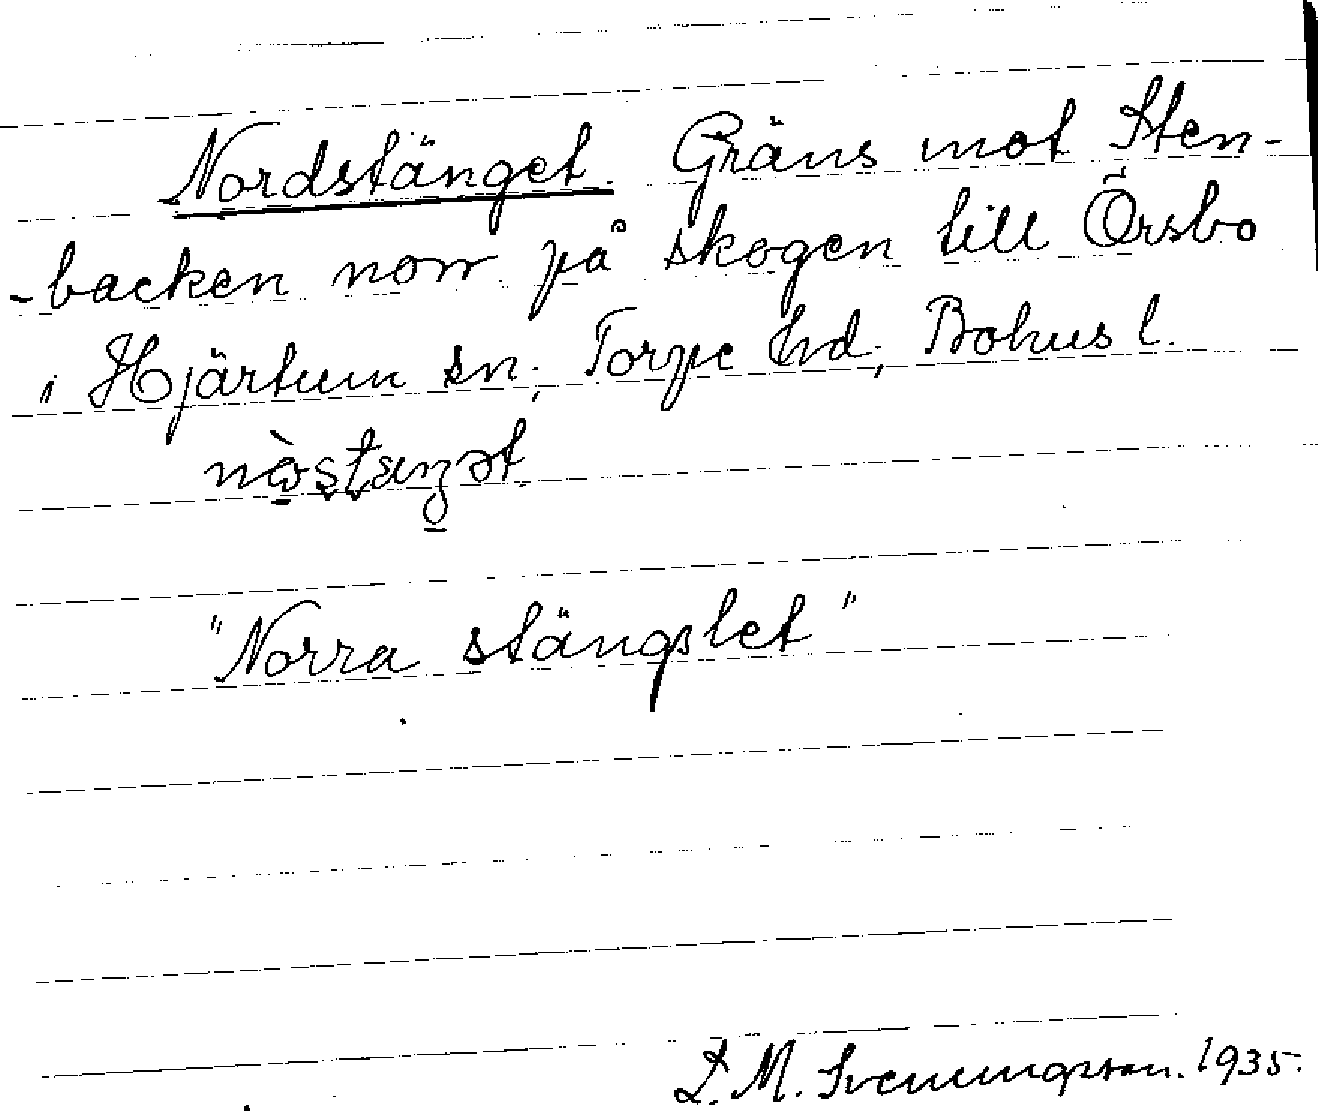 Nordstänget. Gräns mot Sten-
-backen norr på skogen till Örsbo
i Hjärtum sn; Torpe hd; Bohus l.
"Norra stängslet"
M. Svenungsson. 1935.